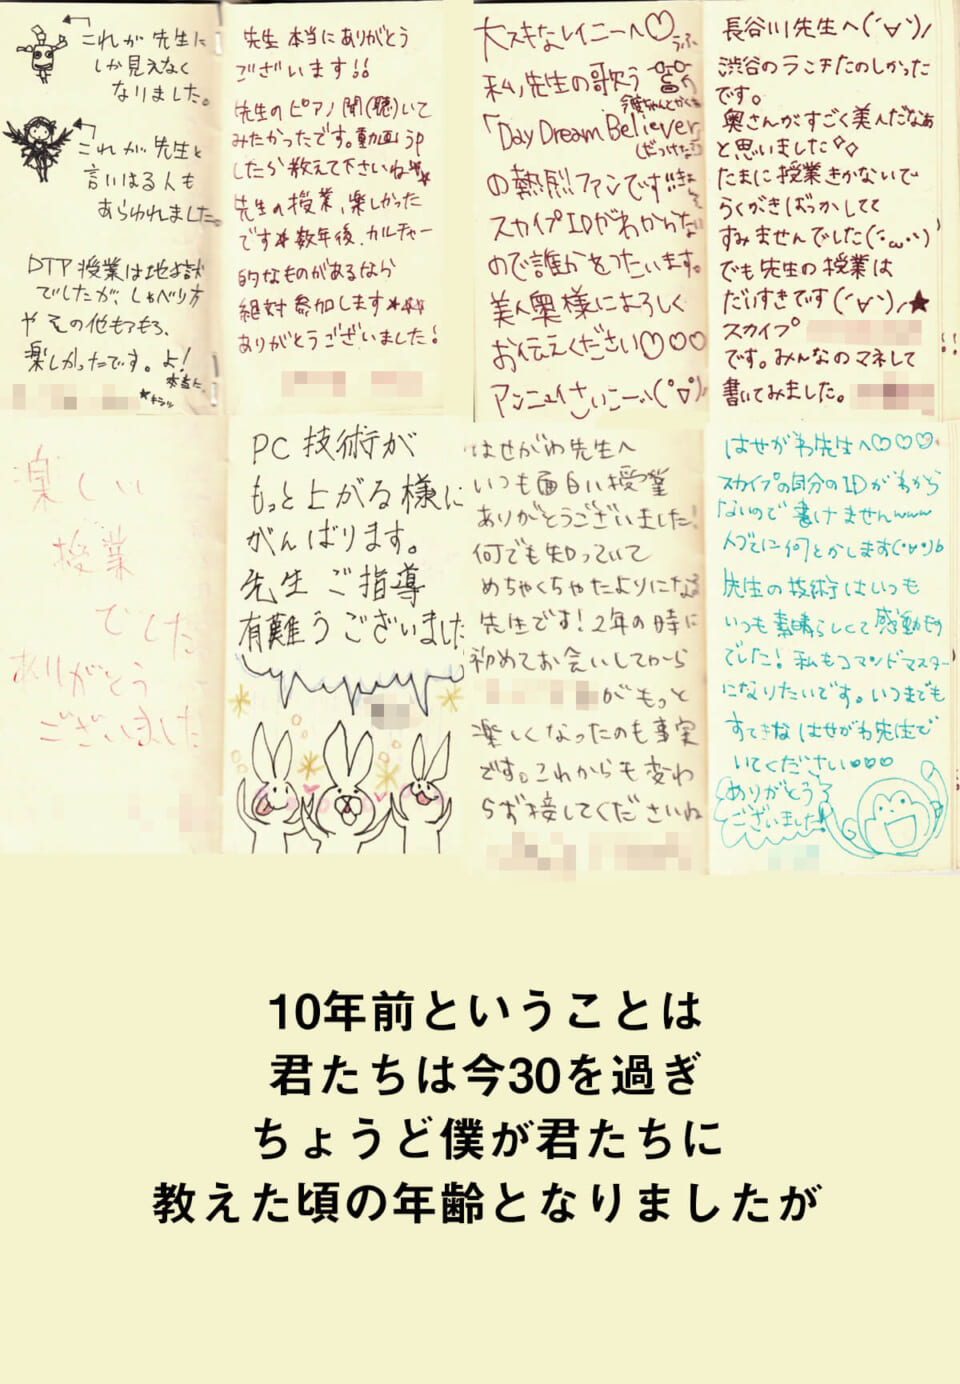 これが先生に
しか見えなく
なりました。
これが先生と
言いはる人も
あらわれました。
DTP授業は地よ獄
でしたが、しゃべり方
やその他もろもろ、
楽しかったです。よ!
本当に。
先生本当にありがとう
ございます!!
先生のピアノ聞(聴)いて
みたかったです。動画up
したら教えて下さいね
先生の授業、楽しかった
です*数年後、カルチャー
的なものがあるなら
絶対参加します
ありがとうございました!
大スキなレイニーへ♡
うふ
私、先生の歌う
「Day Dream Believer」
の熱烈ファンです!!
スカイプIDがわからな
ので誰かをつたいます。
美人奥様によろしく
お伝えください♡♡♡
アンニュイさいこーい(°▽°)ノ
長谷川先生へ(´∀`)ノ
渋谷のランチたのしかった
です。
奥さんがすごく美人だなぁ
と思いました
たまに授業きかないで
らくがきばっかしてて
すみませんでした(´・ω・`)
でも先生の授業は
だいすきです(´∀`)ノ★
スカイプ
です。みんなのマネして
書いてみました。
楽しい
授業
でした
ありがとう
ございました
PC技術が
もっと上がる様に
がんばります。
先生ご指導
有難うございました
はせがわ先生へ
いつも面白い授業
ありがとうございました!
何でも知っていて
めちゃくちゃたよりになる
先生です!2年の時に
初めてお会いしてから
がもっと
楽しくなったのも事実
です。これからも変わ
らず接してくださいね
はせがわ先生へ♡♡♡
スカイプの自分のIDがわから
ないので書けませんwww
人づてに何とかします(・∀・)b
先生の技術はいつも
いつも素晴らしくて感動もの
でした!私もコマンドマスター
になりたいです。いつまでも
すてきなはせがわ先生で
いてください♡♡♡
ありがとう
ございました!
10年前ということは
君たちは今30を過ぎ
ちょうど僕が君たちに
教えた頃の年齢となりましたが